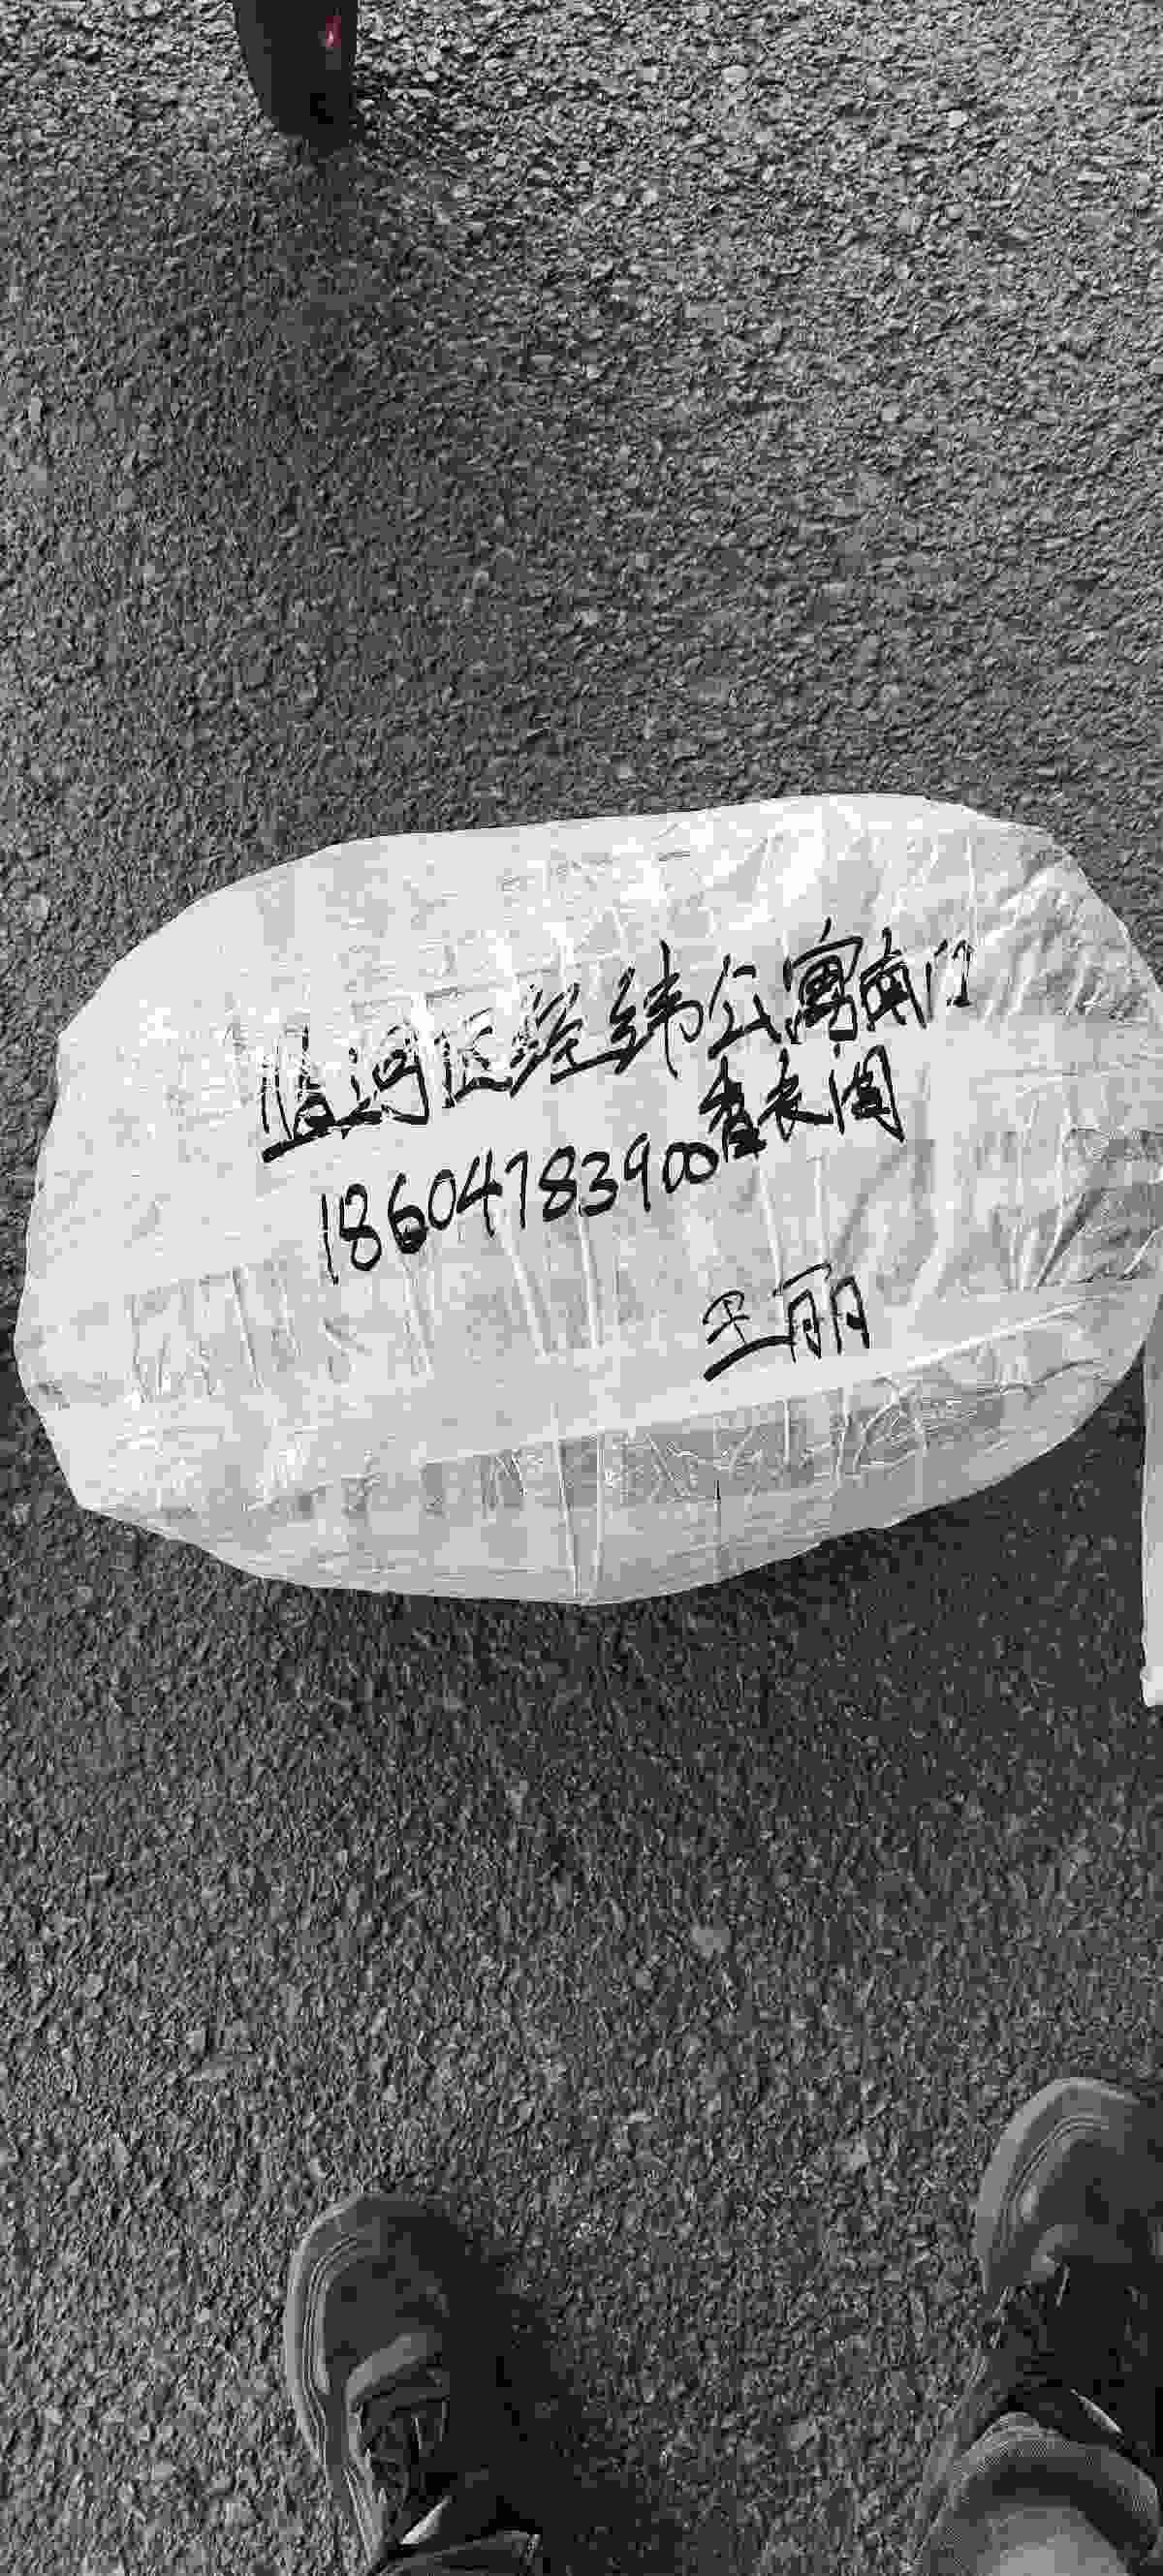 临河区经纬公寓南门
香衣阁
18604783900
王丽